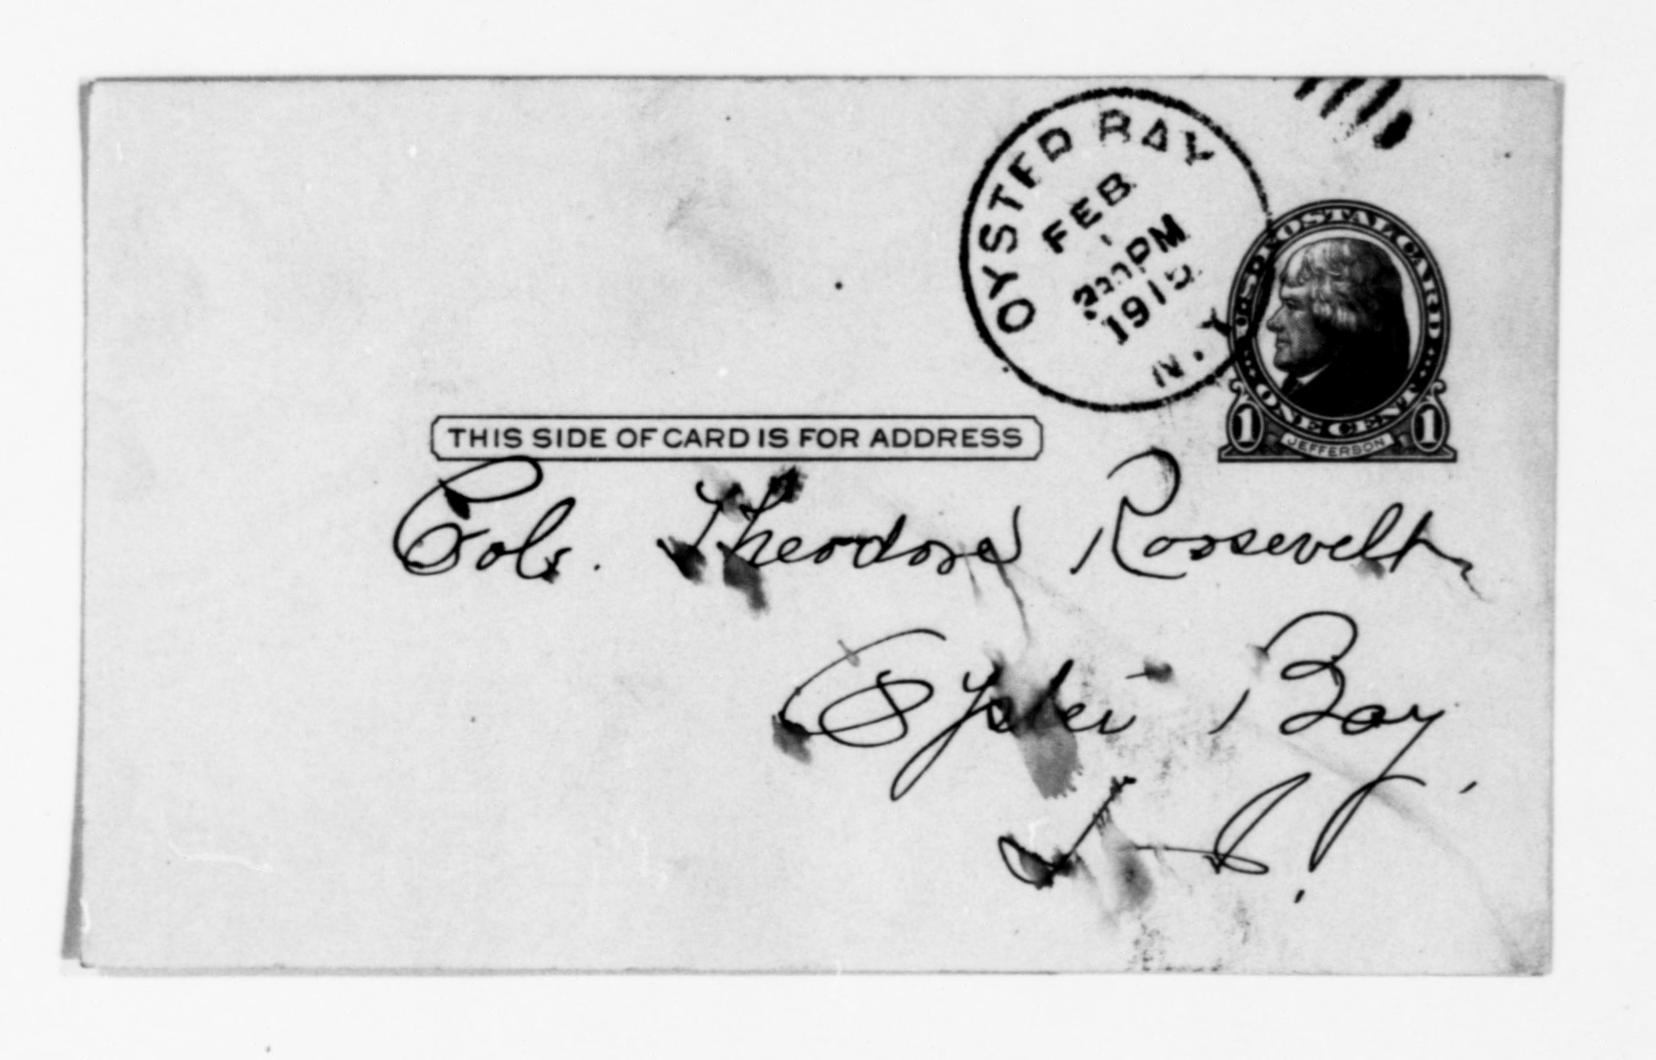 OYSTER BAY
FEB
1
PM
1915
N.Y.
U.S. POSTAL CARD
ONE CENT
1 JEFFERSON 1
THIS SIDE OF CARD IS FOR ADDRESS
Col. Theodore Roosevelt,
Oyster Bay,